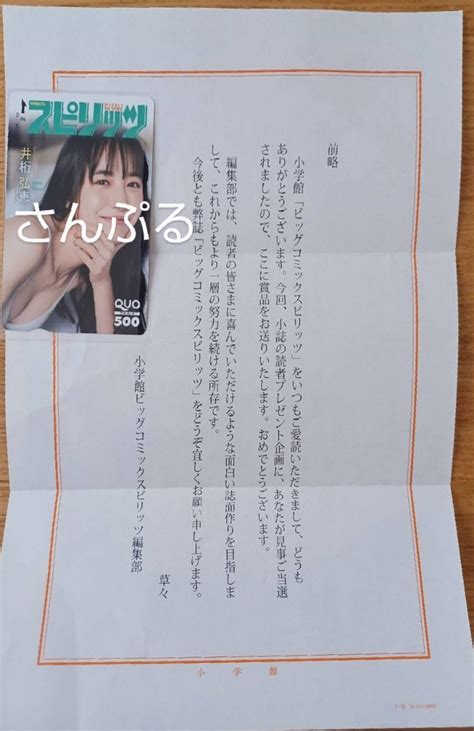 前略
小学館「ビッグコミックスピリッツ」をいつもご愛読いただきまして、どうも
ありがとうございます。今回、小誌の読者プレゼント企画に、あなたが見事ご当選
されましたので、ここに賞品をお送りいたします。おめでとうございます。
編集部では、読者の皆さまに喜んでいただけるような面白い誌面作りを目指しま
して、これからもより一層の努力を続ける所存です。
今後とも弊誌「ビッグコミックスピリッツ」をどうぞ宜しくお願い申し上げます。
草々
小学館ビッグコミックスピリッツ編集部
スピリッツ
井桁弘恵
さんぷる
QUO
500
小学館